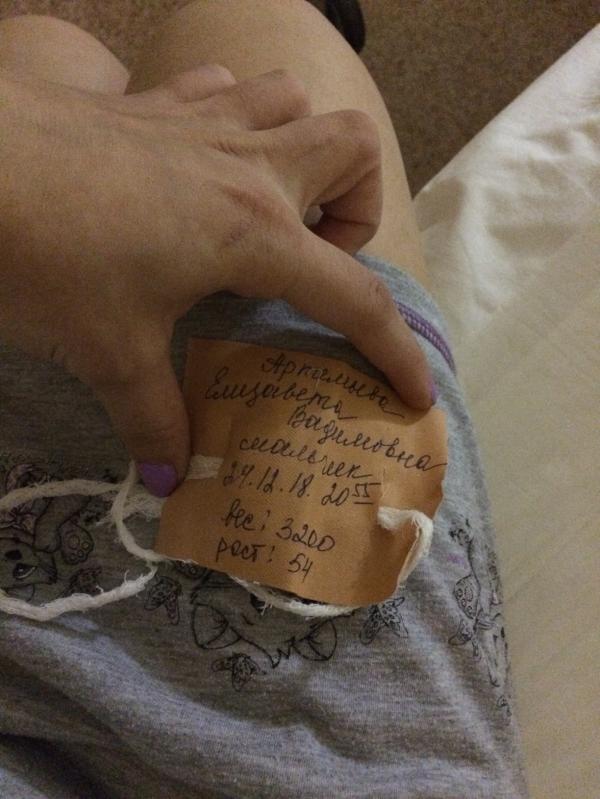 Елизавета
Вадимовна
мальчик
24.12.18. 20 55
вес: 3200
рост: 54